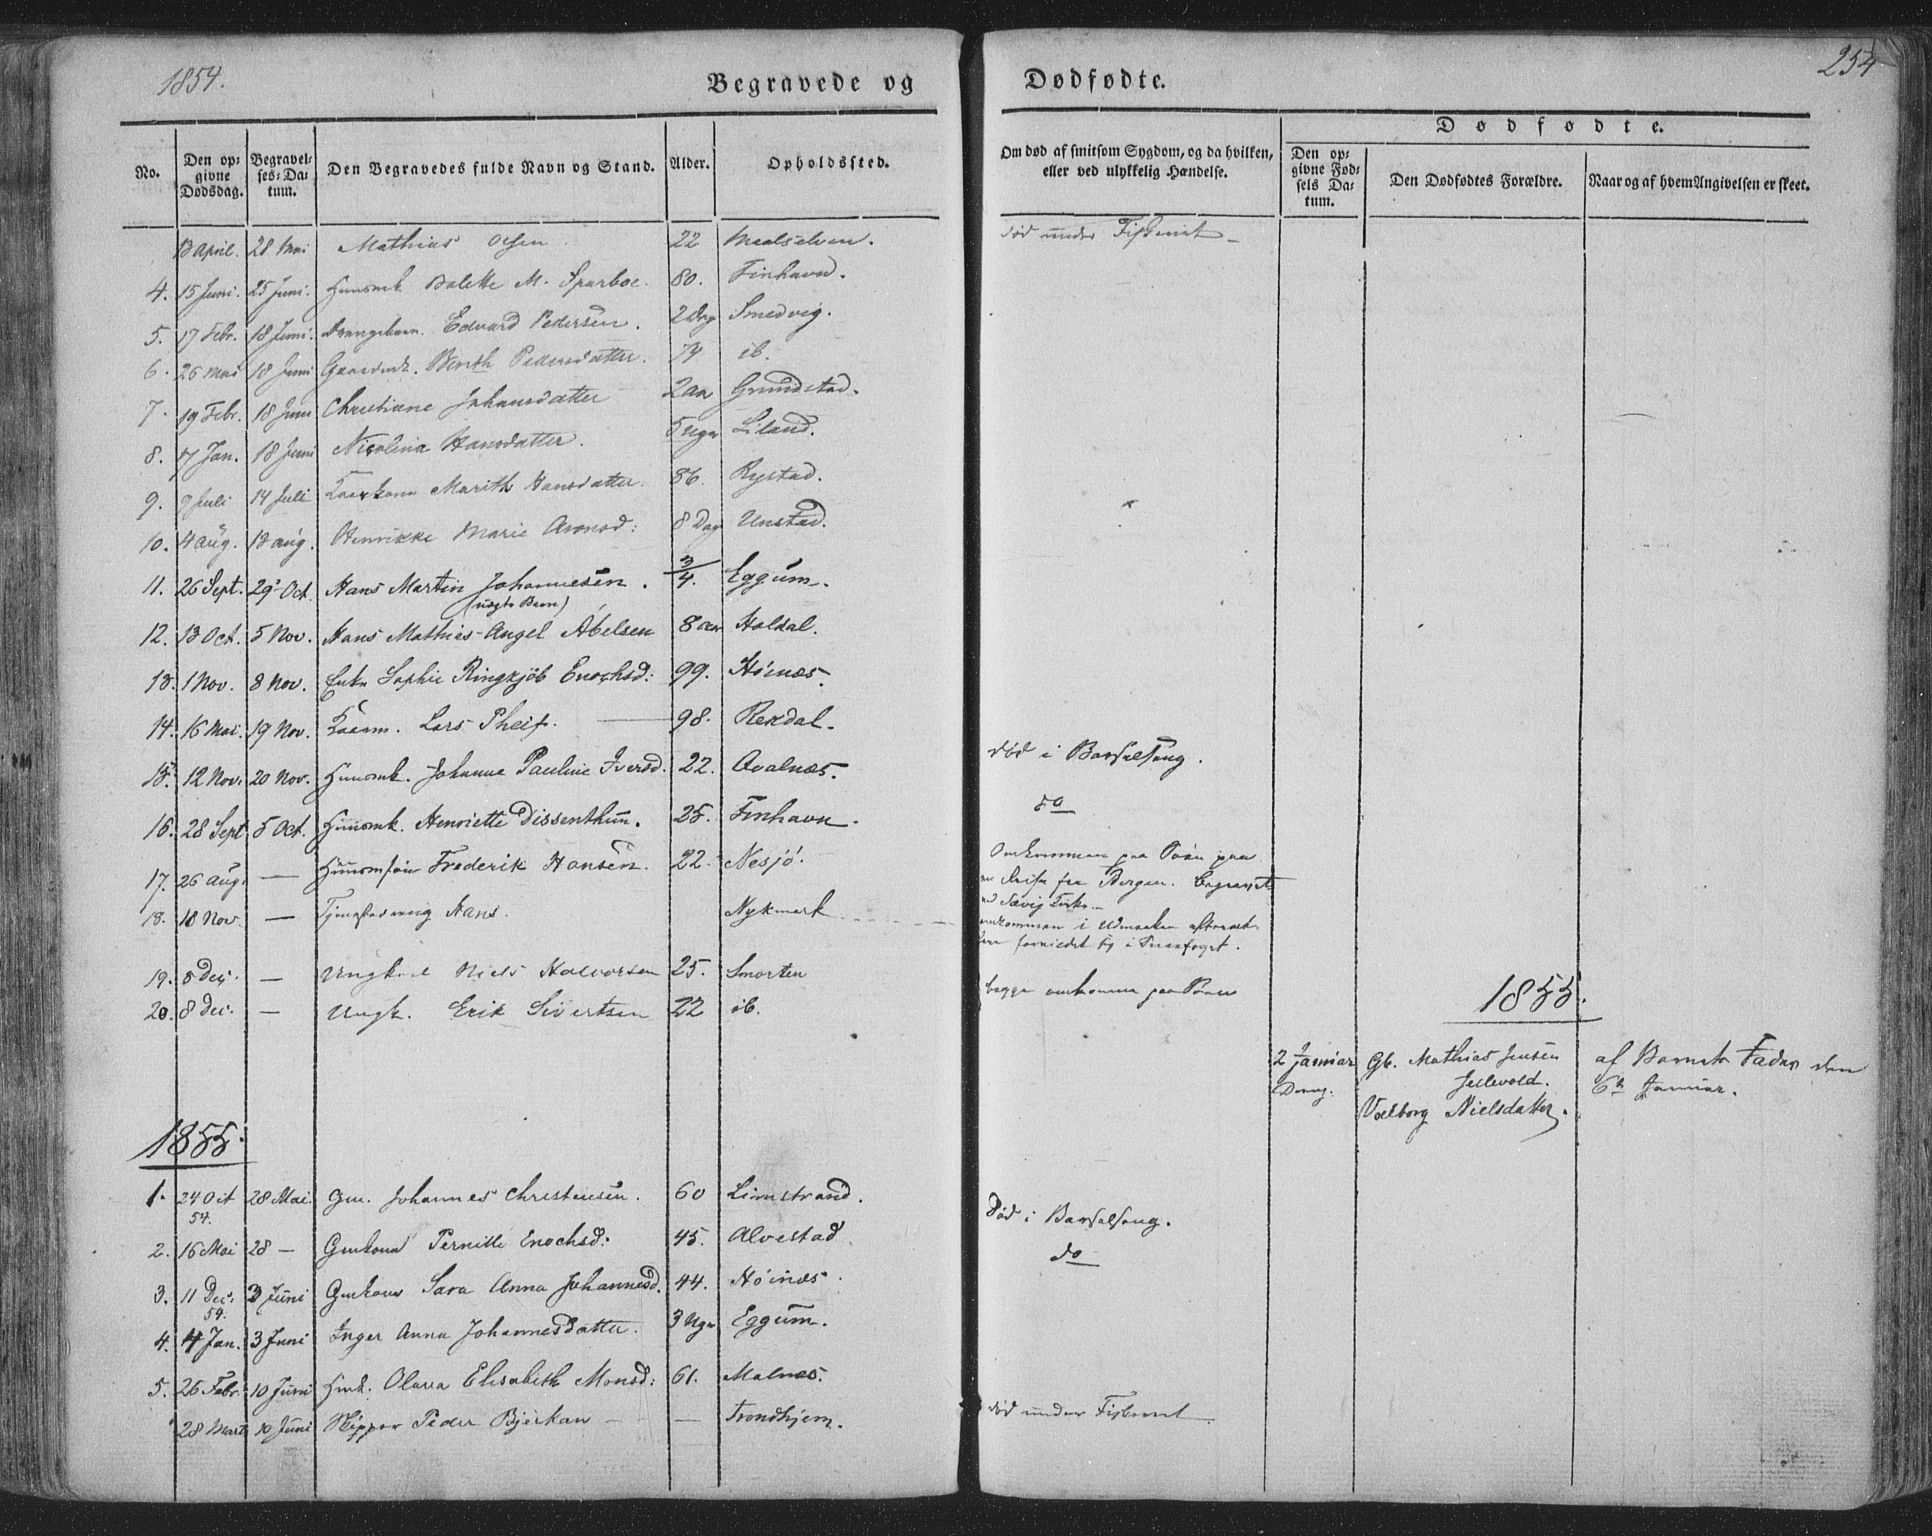 1854.
Begravede og Dødfødte.
254
No.
Den opgivne Dødsdag.
Begravelses-Datum.
Den Begravedes fulde Navn og Stand.
Alder.
Opholdssted.
Om død af smitsom Sygdom, og da hvilken, eller ved ulykkelig Hændelse.
Dødfødte.
Den opgivne Fødsels Datum.
Den Dødfødtes Forældre.
Naar og af hvem Angivelsen er skeet.
13 April. 28 Mai Mathias Olsen 22 Maalselven. død under Fiskeriet
4. 15 Juni. 25 Juni. Huusmk. Bolette M. Sparboe. 80. Finhavn.
5. 17 Febr. 18 Juni. Drengebarn. Edvard Pedersen. 2 Dag Smedvig.
6. 26 Mai 18 Juni Gaardmk. Berith Pedersdatter. 74 ib.
7. 19 Febr. 18 Juni Christiane Johansdatter 2 aar Grundstad.
8. 17 Jan. 18 Juni Nicolina Hansdatter. 5 Uger Liland.
9. 7 Juli 14 Juli Marith Hansdatter. 86. Rystad.
10. 4 Aug. 13 Aug. Henrikke Marie Aronsd: 8 Dag Unstad.
11. 26 Sept. 29 Oct. Hans Martin Johannesen. 3/4. Eggum.
(uægte Barn)
12. 13 Oct. 5 Nov. Hans Mathias Angel Abelsen 8 aar Holdal.
13. 1 Nov. 8 Nov. Enke Sophie Ringkjöb Enochsd: 99. Höinæs.
14. 16 Mai. 19 Nov. Lars Pheif. 98. Rekdal.
15. 12 Nov. 20 Nov. Huusmk. Johanna Pauline Iversd. 22. Qvalnæs. død i Barselseng.
16. 28 Sept 5 Oct. Huusmk. Henriette Dissenthun. 25. Finhavn. do
17. 26 Aug. — Frederik Hansen. 22. Nesjö. Omkommen paa Søen paa
en Reise fra Bergen. Begravet
18. 18 Nov — Hans. Nykmark
omkommen i
19. 8 Dec. — Ungkarl Niels Halvorsen 25. Smorten begge omkomne paa Søen
20. 8 Dec. — Ungk. Erik Sivertsen 22 ib.
1855.
2 Januar Gb. Mathias Jensen af Barnets Fader den
Jellevold. 6te Januar.
Valborg Nielsdatter.
1855.
1. 24 Oct 28 Mai. Gm. Johannes Christensen. 60 Limstrand.
54.
2. 16 Mai 28 — Gmkona Pernille Enochsd: 45. Alvestad. Død i Barselseng.
3. 11 Dec. 3 Juni Gmkona Sara Anna Johannesd. 44. Höinæs. do
54.
4. 4 Jan. 3 Juni Inger Anna Johannesdatter. 3 Uger Eggum.
5. 26 Febr. 10 Juni Hmk. Olava Elisabeth Monsd: 61. Malnæs.
28 Marts 10 Juni Skipper Peder Bjerkan — — Trondhjem. død under Fiskeriet